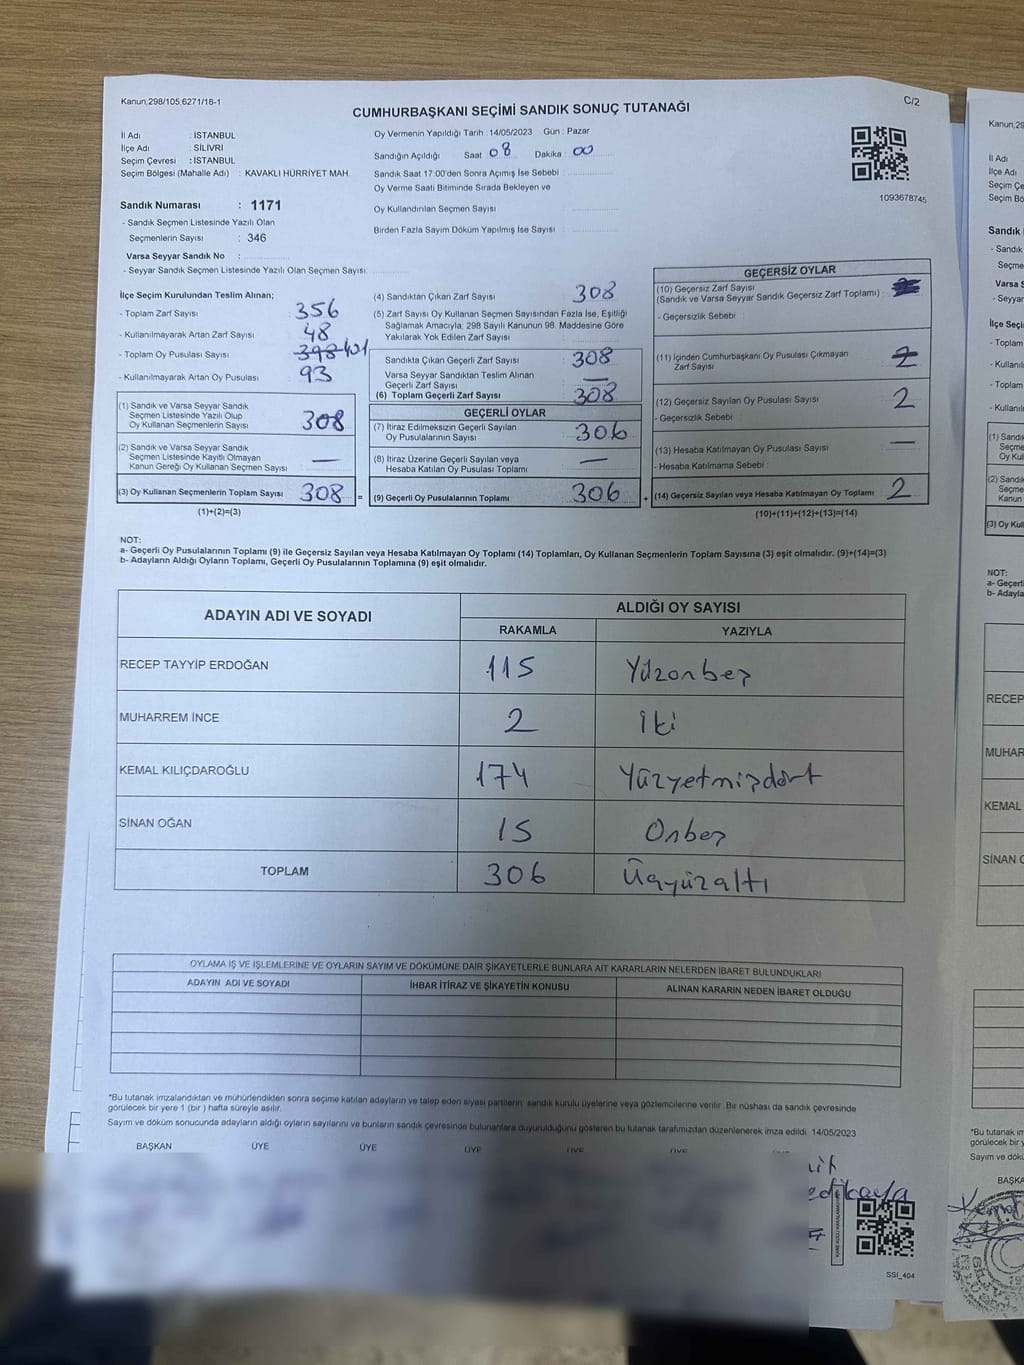 Kanun,298/105,6271/18-1
C/2
CUMHURBAŞKANI SEÇİMİ SANDIK SONUÇ TUTANAĞI
İl Adı : İSTANBUL
İlçe Adı : SİLİVRİ
Seçim Çevresi : İSTANBUL
Seçim Bölgesi (Mahalle Adı) : KAVAKLI HÜRRİYET MAH.
Sandık Numarası : 1171
- Sandık Seçmen Listesinde Yazılı Olan
Seçmenlerin Sayısı : 346
Varsa Seyyar Sandık No :
- Seyyar Sandık Seçmen Listesinde Yazılı Olan Seçmen Sayısı:
Oy Vermenin Yapıldığı Tarih : 14/05/2023 Gün : Pazar
Sandığın Açıldığı Saat 08 Dakika 00
Sandık Saat 17:00'den Sonra Açılmış İse Sebebi :
Oy Verme Saati Bitiminde Sırada Bekleyen ve
Oy Kullandırılan Seçmen Sayısı :
Birden Fazla Sayım Döküm Yapılmış İse Sayısı :
1093678745
İlçe Seçim Kurulundan Teslim Alınan;
- Toplam Zarf Sayısı : 356
- Kullanılmayarak Artan Zarf Sayısı : 48
- Toplam Oy Pusulası Sayısı : 398 401
- Kullanılmayarak Artan Oy Pusulası : 93
(1) Sandık ve Varsa Seyyar Sandık
Seçmen Listesinde Yazılı Olup
Oy Kullanan Seçmenlerin Sayısı : 308
(2) Sandık ve Varsa Seyyar Sandık
Seçmen Listesinde Kayıtlı Olmayan
Kanun Gereği Oy Kullanan Seçmen Sayısı : —
(3) Oy Kullanan Seçmenlerin Toplam Sayısı : 308 =
(1)+(2)=(3)
(4) Sandıktan Çıkan Zarf Sayısı : 308
(5) Zarf Sayısı Oy Kullanan Seçmen Sayısından Fazla İse, Eşitliği
Sağlamak Amacıyla; 298 Sayılı Kanunun 98. Maddesine Göre
Yakılarak Yok Edilen Zarf Sayısı :
Sandıkta Çıkan Geçerli Zarf Sayısı : 308
Varsa Seyyar Sandıktan Teslim Alınan
Geçerli Zarf Sayısı : —
(6) Toplam Geçerli Zarf Sayısı : 308
GEÇERLİ OYLAR
(7) İtiraz Edilmeksizin Geçerli Sayılan
Oy Pusulalarının Sayısı : 306
(8) İtiraz Üzerine Geçerli Sayılan veya
Hesaba Katılan Oy Pusulası Toplamı : —
(9) Geçerli Oy Pusulalarının Toplamı : 306 +
GEÇERSİZ OYLAR
(10) Geçersiz Zarf Sayısı
(Sandık ve Varsa Seyyar Sandık Geçersiz Zarf Toplamı) :
- Geçersizlik Sebebi :
(11) İçinden Cumhurbaşkanı Oy Pusulası Çıkmayan
Zarf Sayısı : 2
(12) Geçersiz Sayılan Oy Pusulası Sayısı : 2
- Geçersizlik Sebebi :
(13) Hesaba Katılmayan Oy Pusulası Sayısı : —
- Hesaba Katılmama Sebebi :
(14) Geçersiz Sayılan veya Hesaba Katılmayan Oy Toplamı : 2
(10)+(11)+(12)+(13)=(14)
NOT:
a- Geçerli Oy Pusulalarının Toplamı (9) ile Geçersiz Sayılan veya Hesaba Katılmayan Oy Toplamı (14) Toplamları, Oy Kullanan Seçmenlerin Toplam Sayısına (3) eşit olmalıdır. (9)+(14)=(3)
b- Adayların Aldığı Oyların Toplamı, Geçerli Oy Pusulalarının Toplamına (9) eşit olmalıdır.
ADAYIN ADI VE SOYADI
ALDIĞI OY SAYISI
RAKAMLA YAZIYLA
RECEP TAYYİP ERDOĞAN 115 Yüzonbeş
MUHARREM İNCE 2 İki
KEMAL KILIÇDAROĞLU 174 Yüzyetmişdört
SİNAN OĞAN 15 Onbeş
TOPLAM 306 Üçyüzaltı
OYLAMA İŞ VE İŞLEMLERİNE VE OYLARIN SAYIM VE DÖKÜMÜNE DAİR ŞİKAYETLERLE BUNLARA AİT KARARLARIN NELERDEN İBARET BULUNDUKLARI
ADAYIN ADI VE SOYADI İHBAR İTİRAZ VE ŞİKAYETİN KONUSU ALINAN KARARIN NEDEN İBARET OLDUĞU
*Bu tutanak imzalandıktan ve mühürlendikten sonra seçime katılan adayların ve talep eden siyasi partilerin sandık kurulu üyelerine veya gözlemcilerine verilir. Bir nüshası da sandık çevresinde
görülecek bir yere 1 (bir ) hafta süreyle asılır.
Sayım ve döküm sonucunda adayların aldığı oyların sayılarını ve bunların sandık çevresinde bulunanlara duyurulduğunu gösteren bu tutanak tarafımızdan düzenlenerek imza edildi. 14/05/2023
BAŞKAN ÜYE ÜYE ÜYE ÜYE ÜYE
SSI_404
Kanun,29
İl Adı
İlçe Adı
Seçim Çe
Seçim Bö
Sandık
- Sandık
Seçme
Varsa S
- Seyyar
İlçe Seçi
- Toplam
- Kullanıl
- Toplam
- Kullanıl
(1) Sandı
Seçm
Oy Kul
(2) Sandık
Seçme
Kanun
(3) Oy Kull
NOT:
a- Geçerli
b- Adayla
RECEP
MUHAR
KEMAL
SİNAN O
*Bu tutanak im
görülecek bir y
Sayım ve dökü
BAŞKA